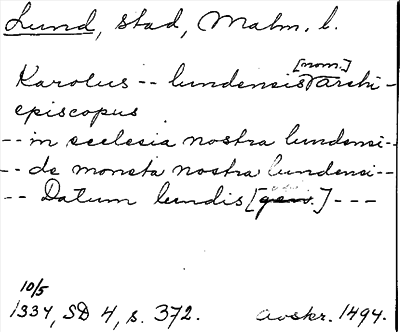 Lund, stad, Malm. l.
[nom.]
Karolus -- lundensis archi-
episcopus
-- in ecclesia nostra lundensi--
-- de moneta nostra lundensi--
-- Datum lundis [gen.] ---
10/5
1334, SD 4, s. 372. avskr. 1494.